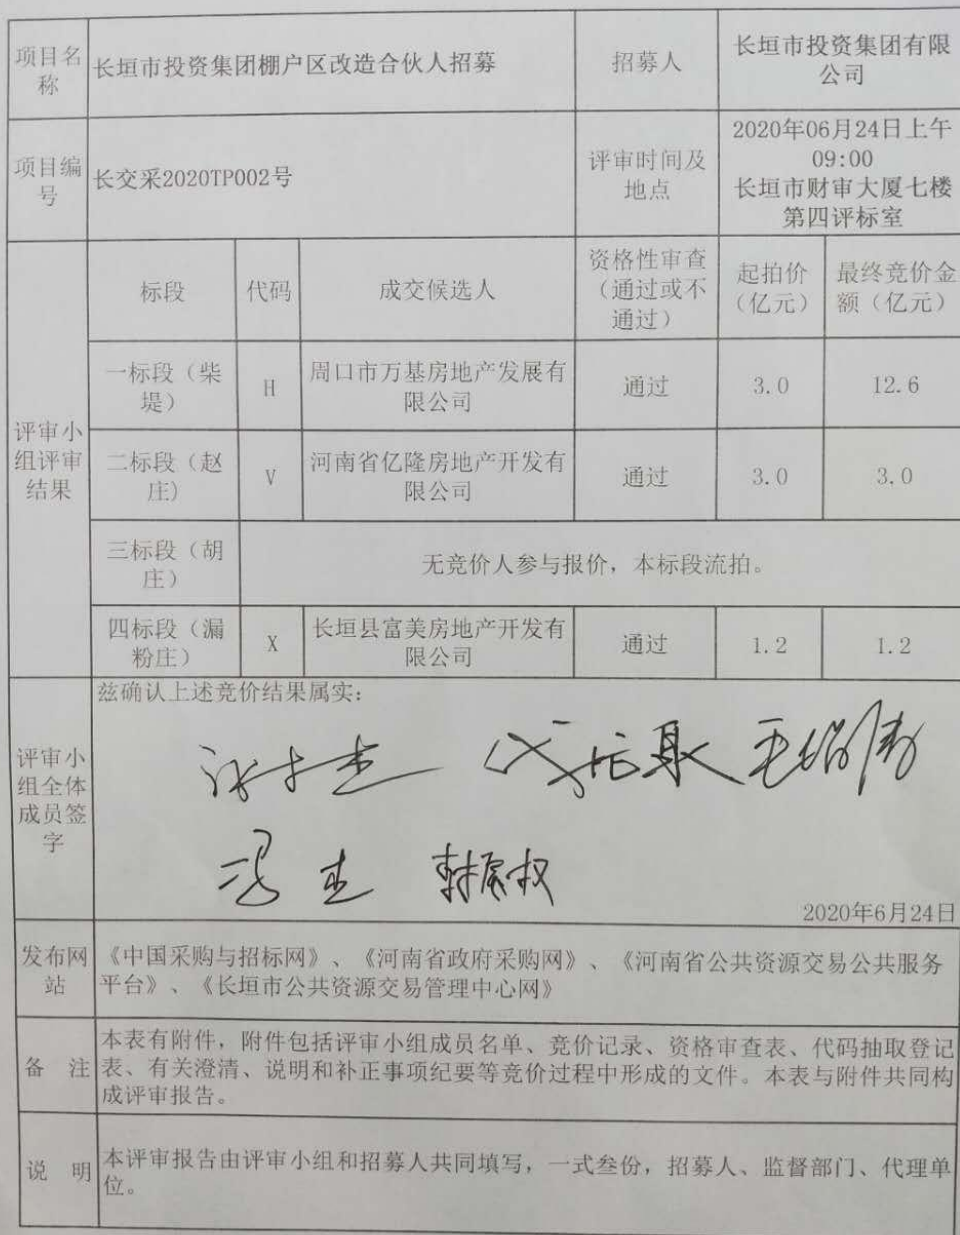 项目名
称
长垣市投资集团棚户区改造合伙人招募
招募人
长垣市投资集团有限
公司
项目编
号
长交采2020TP002号
评审时间及
地点
2020年06月24日上午
09:00
长垣市财审大厦七楼
第四评标室
评审小
组评审
结果
标段
代码
成交候选人
资格性审查
（通过或不
通过）
起拍价
（亿元）
最终竞价金
额（亿元）
一标段（柴
堤）
H
周口市万基房地产发展有
限公司
通过
3.0
12.6
二标段（赵
庄）
V
河南省亿隆房地产开发有
限公司
通过
3.0
3.0
三标段（胡
庄）
无竞价人参与报价，本标段流拍。
四标段（漏
粉庄）
X
长垣县富美房地产开发有
限公司
通过
1.2
1.2
评审小
组全体
成员签
字
兹确认上述竞价结果属实：
冯杰
2020年6月24日
发布网
站
《中国采购与招标网》、《河南省政府采购网》、《河南省公共资源交易公共服务
平台》、《长垣市公共资源交易管理中心网》
备 注
本表有附件，附件包括评审小组成员名单、竞价记录、资格审查表、代码抽取登记
表、有关澄清、说明和补正事项纪要等竞价过程中形成的文件。本表与附件共同构
成评审报告。
说 明
本评审报告由评审小组和招募人共同填写，一式叁份，招募人、监督部门、代理单
位。